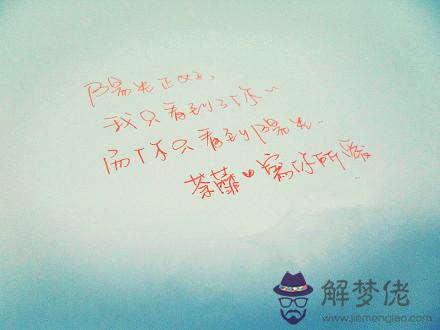 陽光正好，
我只看到了你…
而你只看到陽光…
荼蘼 寫你所愛
解梦佬
www.jiemenglao.com